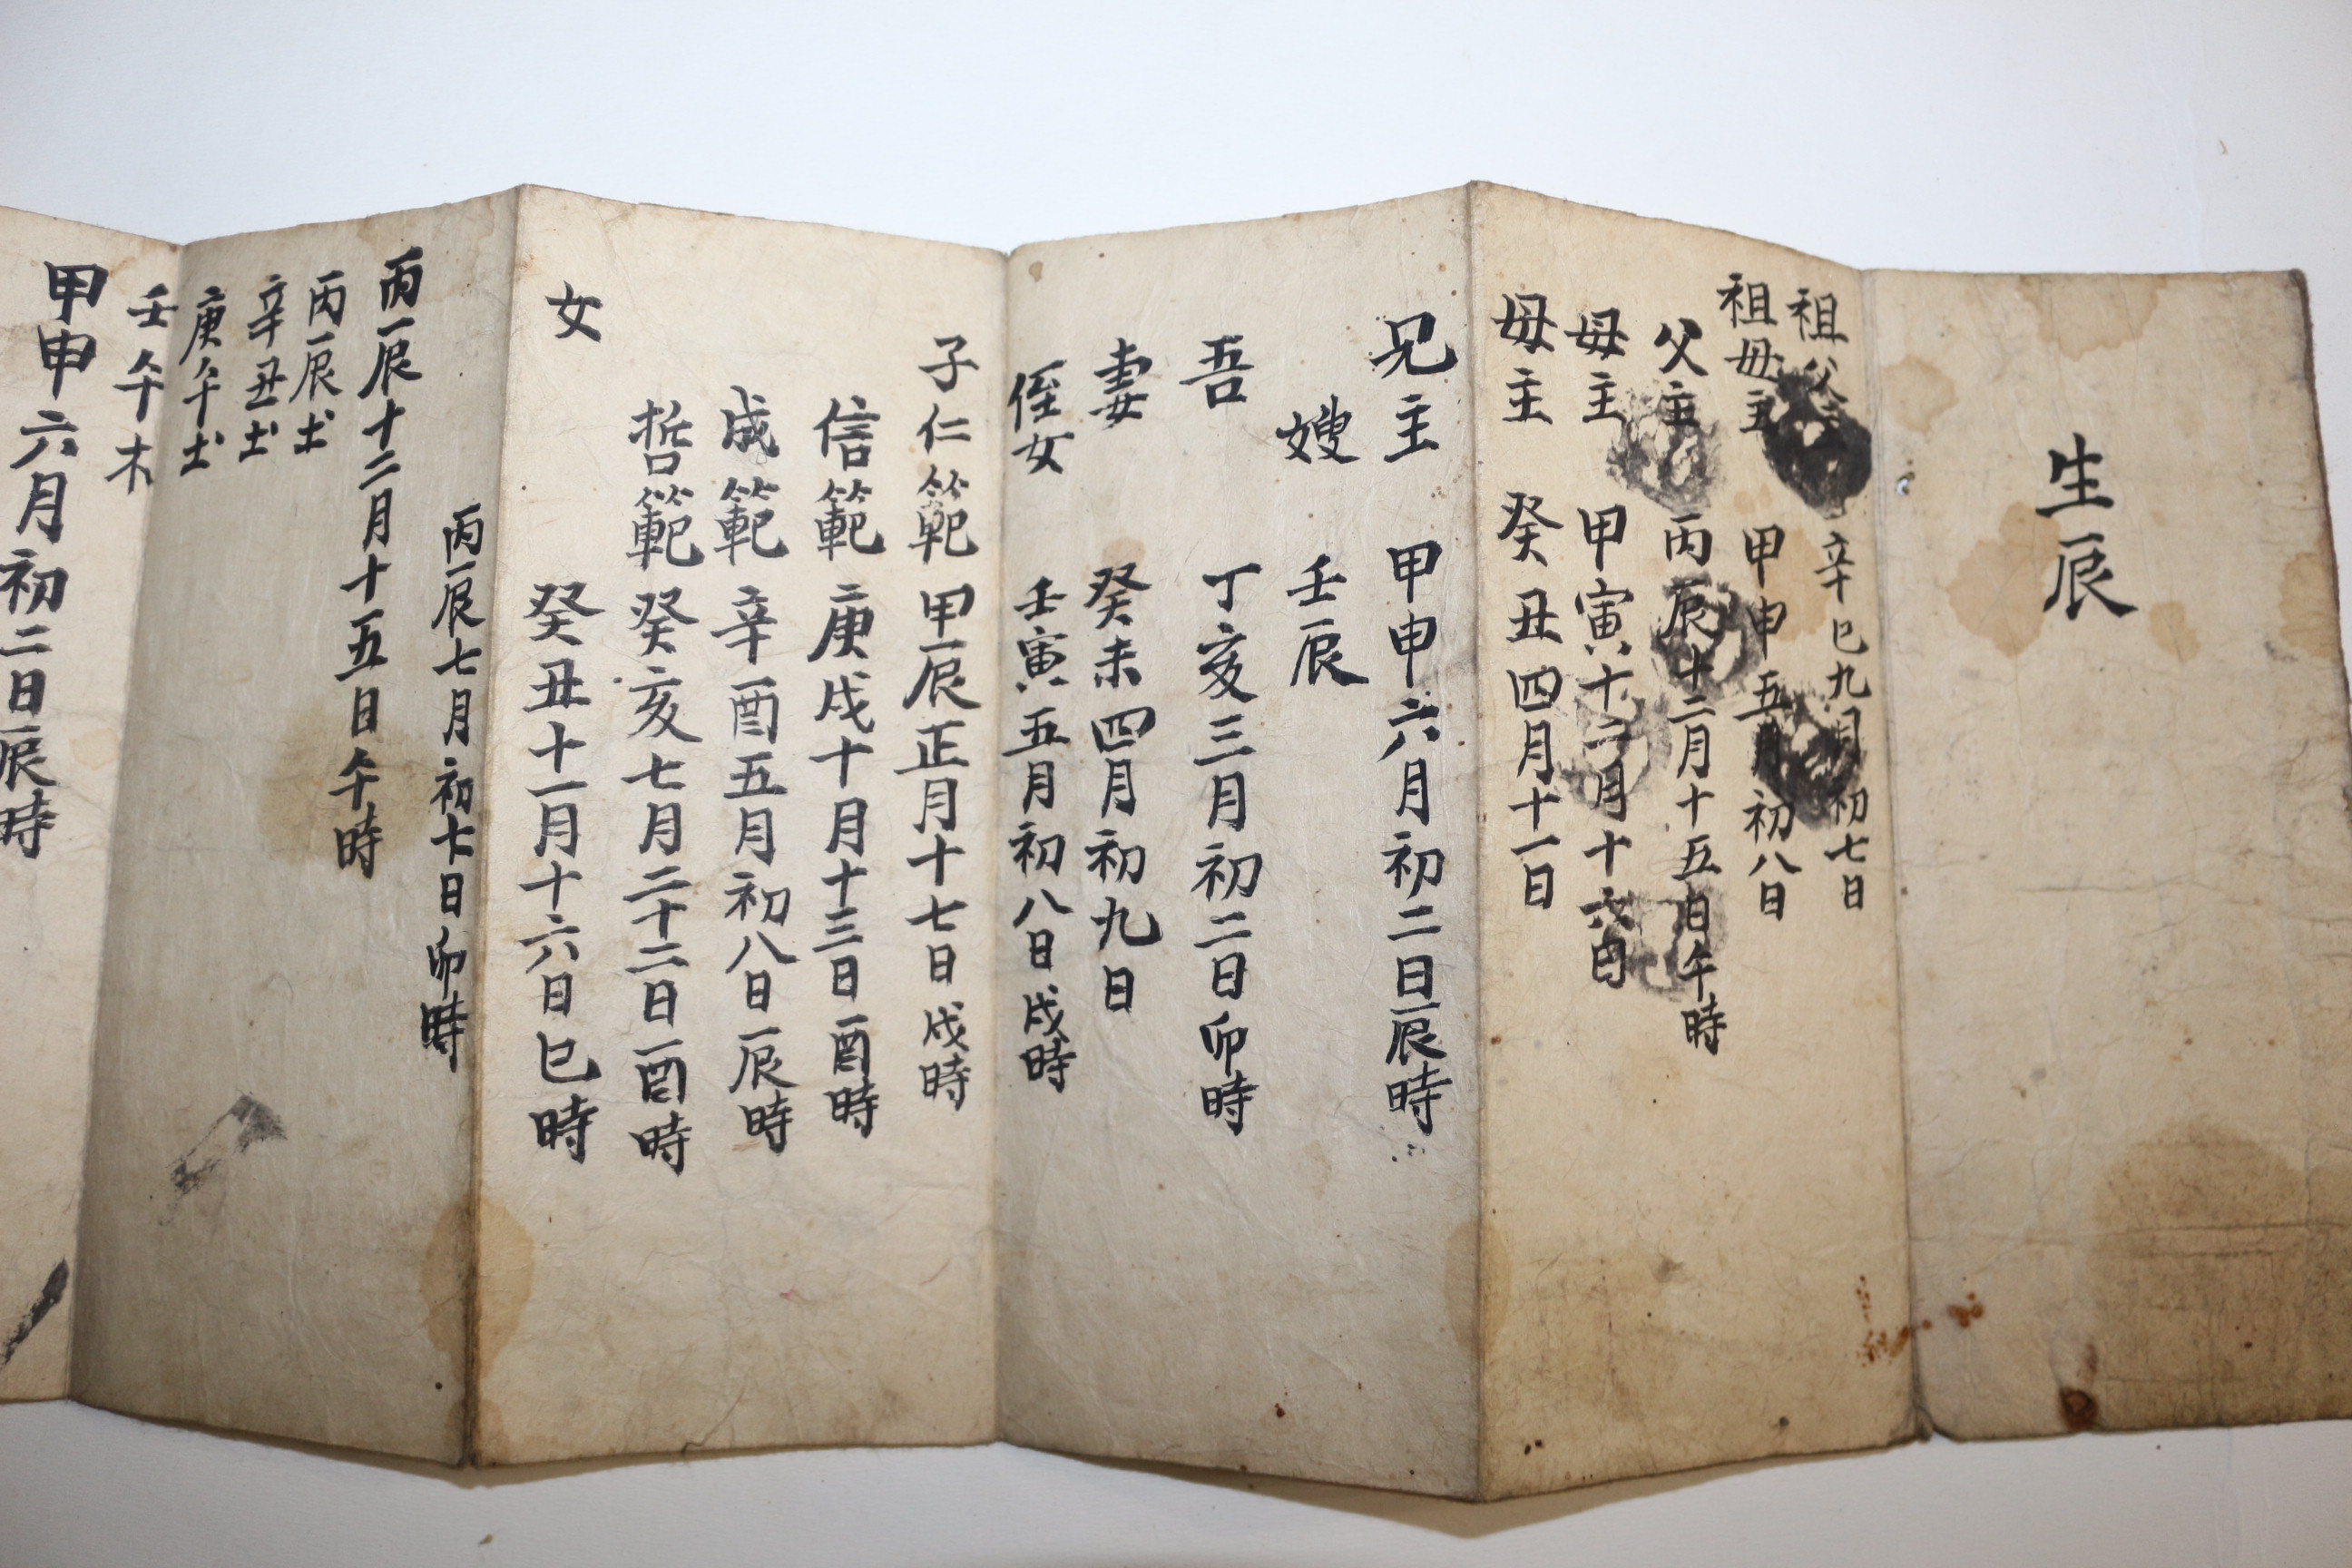 生辰
祖父主 辛巳九月初七日
祖母主 甲申五月初八日
父主 丙辰十二月十五日午時
母主 甲寅十二月十六日
母主 癸丑四月十一日
兄主 甲申六月初二日辰時
嫂 壬辰
吾 丁亥三月初二日卯時
妻 癸未四月初九日
侄女 壬寅五月初八日戌時
子仁範 甲辰正月十七日戌時
信範 庚戌十月十三日酉時
成範 辛酉五月初八日辰時
哲範 癸亥七月二十二日酉時
女 癸丑十一月十六日巳時
丙辰七月初七日卯時
丙辰十二月十五日午時
丙辰土
辛丑土
庚午土
壬午木
甲申六月初二日辰時